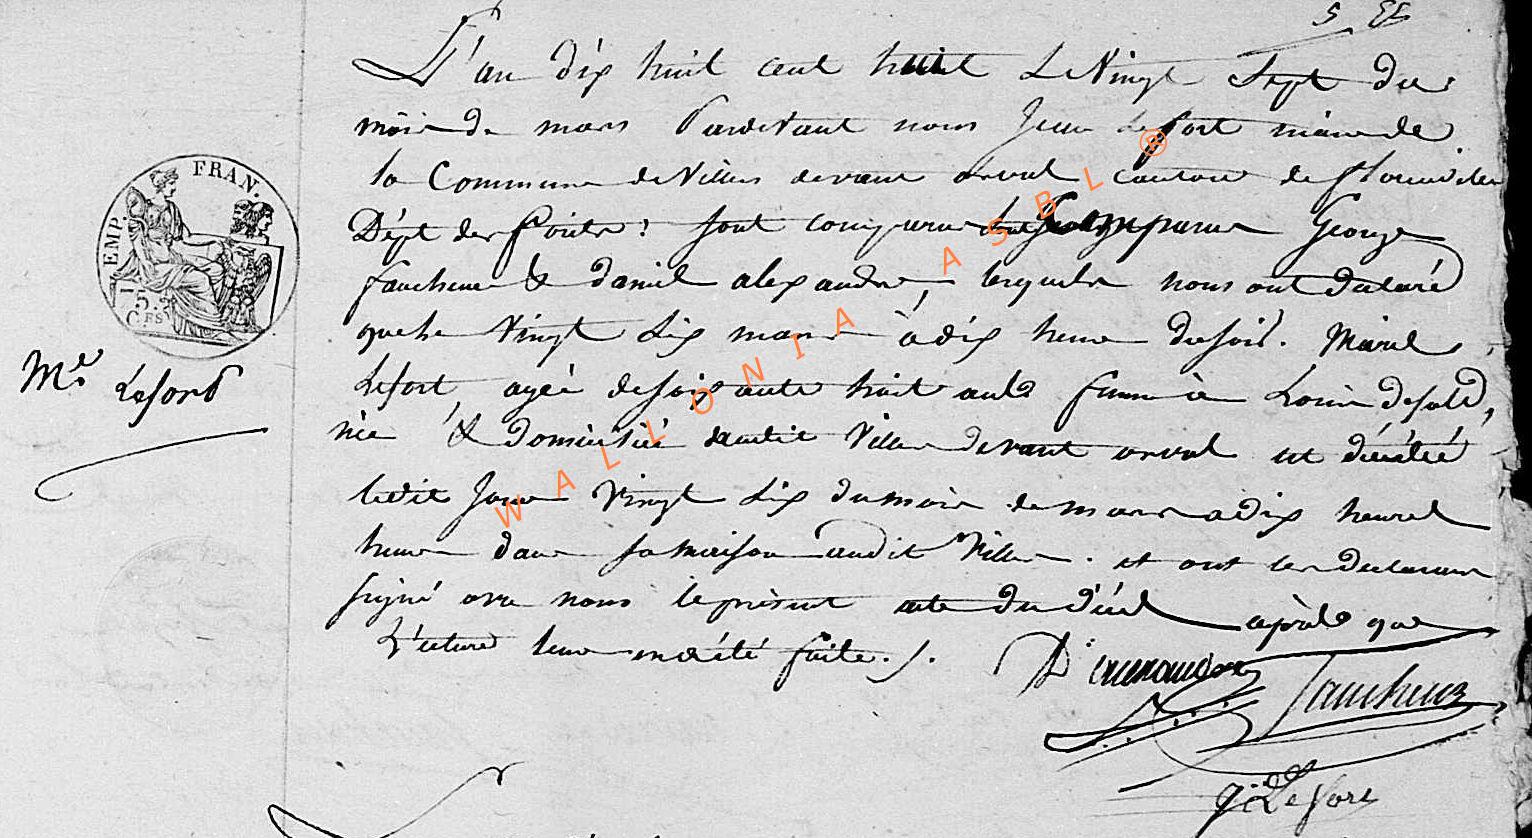 5 
L'an dix huit cent huit Le Vingt Sept du
mois de mars Pardevant nous Jean Lefort maire de
la Commune de Villers devant orval canton de florenville
Dépt des forêts : sont comparus George
faucheux & daniel alexandre, lesquels nous ont declaré
que le Vingt Six mars à dix heure du soir. Marie
Lefort, agée de soixante huit ans femme à Louis
née & domicilié audit Villers devant orval est décédée
ledit Jour Vingt Six du mois de mars a dix heures
heure dans sa maison audit Villers. et ont les declarans
signé avec nous le présent acte du décé après que
Lecture leur en a été faite ./.
D. alexandre faucheux
j: Lefort
Mie Lefort
EMP. FRAN.
75.
C.ES
WALLONIA ASBL ®